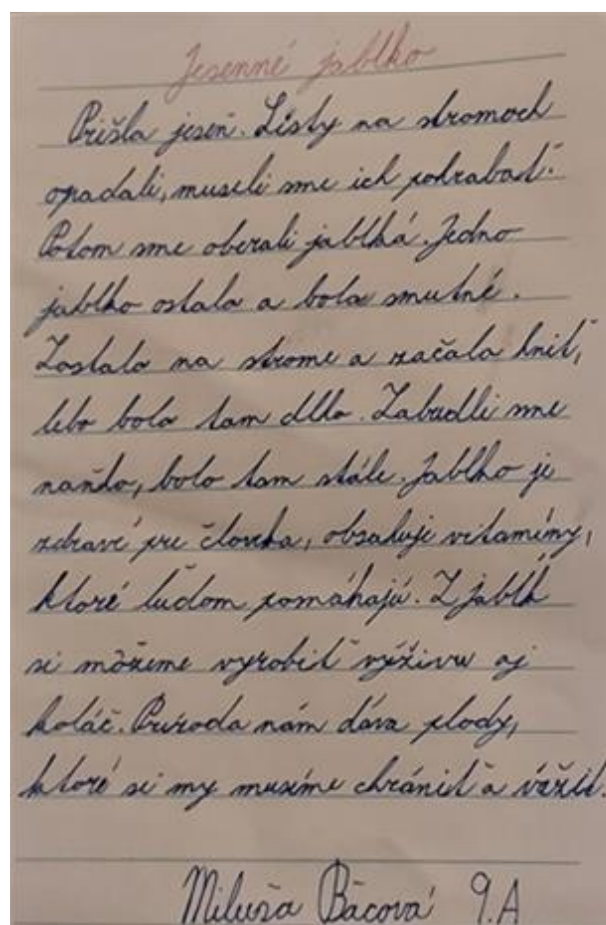 Jesenné jablko
Prišla jeseň. Listy na stromoch
opadali, museli sme ich pohrabať.
Potom sme oberali jablká. Jedno
jablko ostalo a bolo smutné.
Zostalo na strome a začalo hniť,
lebo bolo tam dlho. Zabudli sme
naňho, bolo tam stále. Jablko je
zdravé pre človeka, obsahuje vitamíny,
ktoré ľuďom pomáhajú. Z jabĺk
si môžeme vyrobiť výživu aj
koláč. Príroda nám dáva plody,
ktoré si my musíme chrániť a vážiť.
Miluša Bácová 9.A